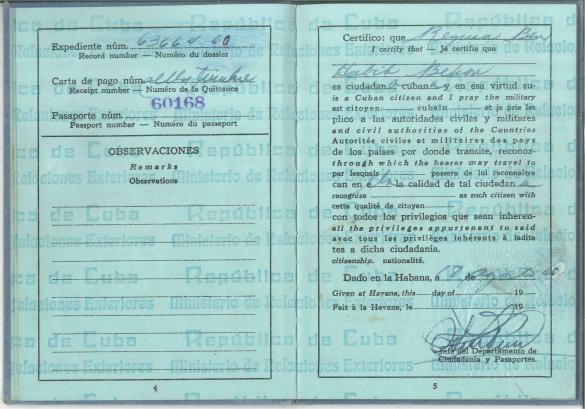 Expediente núm. 63664-60
Record number — Numéro du dossier
Carta de pago núm. sello timbre
Receipt number — Numéro de la Quittance
60168
Pasaporte núm.
Passport number — Numéro du passeport
OBSERVACIONES
Remarks
Observations
4
Certifico: que Regina Ben
I certify that — Je certifie que
Habib Behar
es ciudadana cubana y en esa virtud su-
is a Cuban citizen and I pray the military
est citoyen cubain et je prie les
plico a las autoridades civiles y militares
and civil authorities of the Countries
Autorités civiles et militaires des pays
de los países por donde transite, reconoz-
through which the bearer may travel to
par lesquels passera de lui reconnaître
can en ella la calidad de tal ciudadana
recognize as such citizen with
cette qualité de citoyen
con todos los privilegios que sean inheren-
all the privileges appurtenant to said
avec tous les privilèges inhérents à ladite
tes a dicha ciudadanía.
citizenship. nationalité.
Dado en la Habana, a 18 de agosto 60
Given at Havana, this day of 19
Fait à la Havane, le 19
Jefe del Departamento de
Ciudadanía y Pasaportes.
5
República de Cuba
Ministerio de Relaciones Exteriores